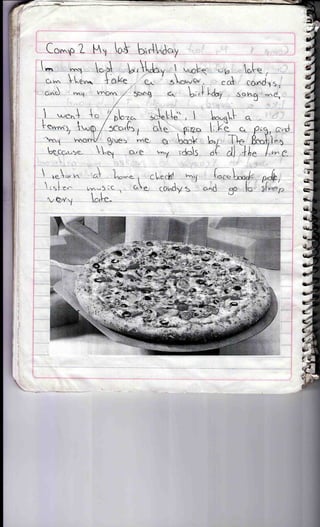 Comp 2 My last birthday
Im my last birthday I woke up late,
am them take a shower, eat candys,
and my mom song a birthday song me,
I went to plaza satelite", I bought a
tennis, two scarfs, ate pizza like a pig, and
my mom gives me a book by The Beatles
because they are my idols of all the time
I return at home, check my facebook,
listen music, ate candys and go to sleep
very late.